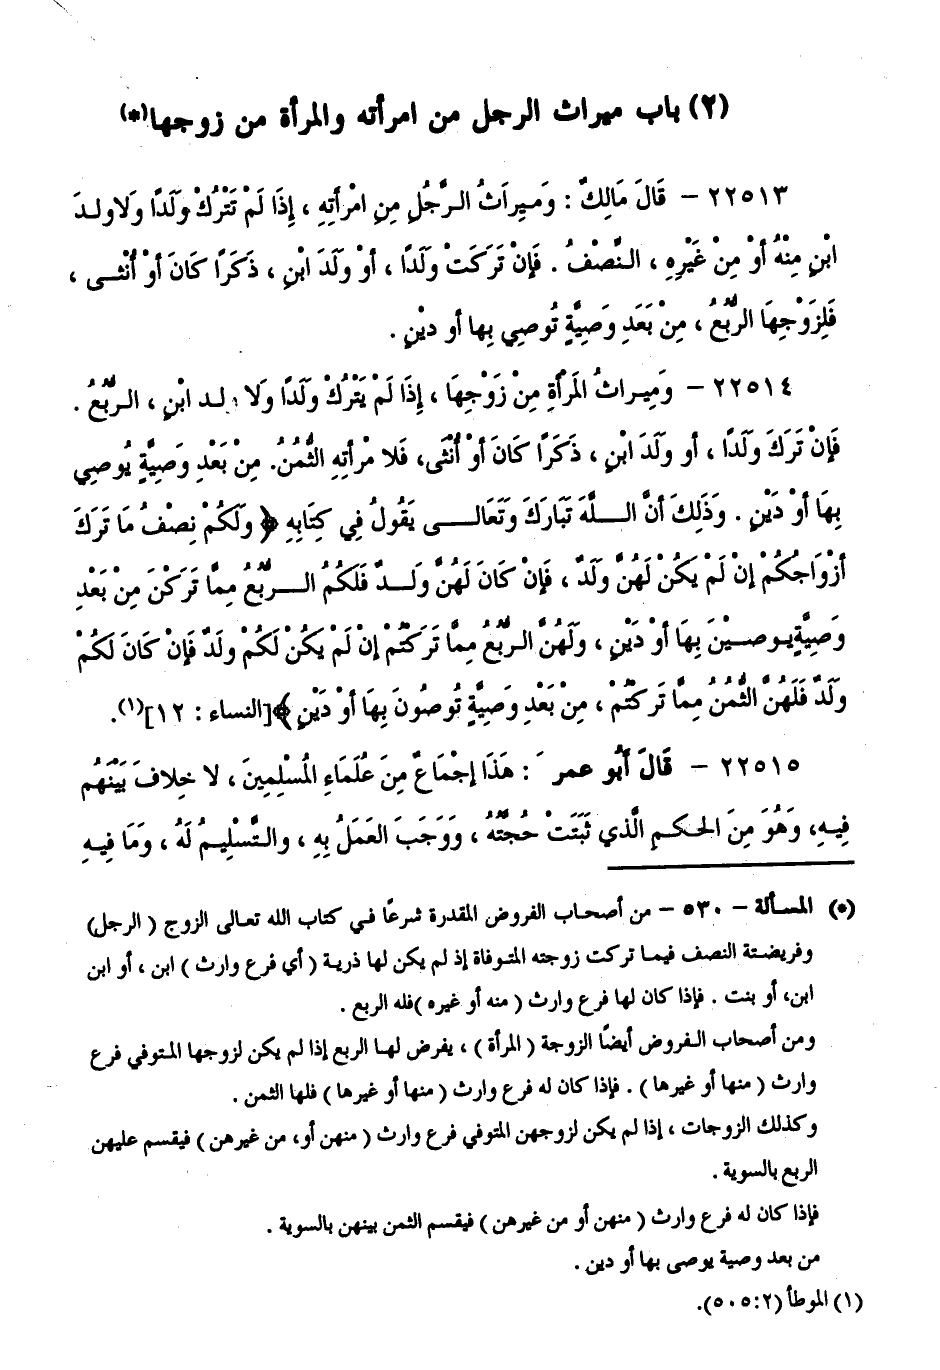 (٢) باب ميراث الرجل من امرأته والمرأة من زوجها(*)
٢٢٥١٣ – قَالَ مَالِكٌ : وَمِيرَاثُ الرَّجُلِ مِنِ امْرأَتِهِ ، إِذَا لَمْ تَتْرُكْ ولَدًا وَلاولـدَ
ابْنٍ مِنْهُ أَوْ مِنْ غَيْرِهِ ، النِّصْفُ . فَإِنْ تَرَكَتْ ولَدًا ، أوْ ولَدَ ابنٍ ، ذكَرًا كَانَ أوْ أُنْثـى ،
فَلِزَوْجِهَا الرُّبُعُ ، مِنْ بَعَدِ وَصِيَّةٍ تُوصِي بِها أو ديْنٍ .
٢٢٥١٤ – وَمِيـراثُ المَرْأَةِ مِنْ زَوْجِهَا ، إِذَا لَمْ يَتْرُكْ ولَدًا وَلا ولـد ابْنٍ ، الـرُّبُعُ .
فَإنْ تَرَكَ ولَدًا ، أو ولَدَ ابْنٍ ، ذكَرًا كَانَ أوْ أُنْثَى، فَلا مْرأتِهِ الثُّمُنُ. مِنْ بَعْدِ وَصِيَّةٍ يُوصِي
بِهَا أوْ دَيْنٍ . وَذَلِكَ أنَّ الـلَّهَ تَبَارَكَ وَتَعَالَـى يَقُولُ فِي كِتَابِهِ ﴿ وَلَكُمْ نِصْفُ مَا تَرَكَ
أزْوَاجكُمْ إنْ لَمْ يَكُنْ لَهُنَّ ولَدٌ ، فَإنْ كَانَ لَهُنَّ وَلَـدٌ فَلَكُمُ الـرُّبُعُ مِمَّا تَرَكْنَ مِنْ بَعْدِ
وَصِيَّةٍ يوصـيْنَ بِهَا أوْ دَيْنٍ ، وَلَهُنَّ الـرُّبُعُ مِمَّا تَركْتُم إنْ لَمْ يَكُنْ لَكُمْ ولَدٌ فَإنْ كَانَ لَكُمْ
ولَدٌ فَلَهُنَّ الثُّمُنُ مِمَّا تَركْتُمْ ، مِنْ بَعْدِ وَصِيَّةٍ تُوصُونَ بِهَا أوْ دَيْنٍ ﴾[النساء : ١٢](١).
٢٢٥١٥ – قَالَ أَبُو عمر : هَذَا إجْمَاعٌ مِنَ عُلَمَاءِ المُسْلِمِينَ ، لا خِلافَ بَيْنَهُم
فِيهِ، وَهُوَ مِنَ الحكـمِ الَّذي ثَبَتَتْ حُجَّتُهُ ، وَوَجَبَ العَمَلُ بِهِ ، والـتَّسْلِيـمُ لَهُ ، وَمَا فِيـهِ
(*) المسألة – ٥٣٠ – من أصحـاب الفروض المقدرة شـرعًا فـي كتاب الله تعالى الزوج ( الرجل)
وفريضـتة النصف فيمـا تركت زوجته المتـوفاة إذ لم يكن لها ذريـة ( أي فرع وارث ) ابن ، أو ابن
ابن، أو بنت . فإذا كان لها فرع وارث ( منه أو غيره )فله الربع .
ومن أصحاب الـفروض أيضًا الزوجة ( المرأة ) ، يفرض لهـا الربع إذا لم يكن لزوجها المتـوفي فرع
وارث ( منها أو غيرها ) . فإذا كان له فرع وارث ( منها أو غيرها ) فلها الثمن .
وكذلك الزوجات ، إذا لم يكن لزوجهن المتوفي فرع وارث ( منهن أو، من غيرهن ) فيقسم عليهن
الربع بالسوية .
فإذا كان له فرع وارث ( منهن أو من غيرهن ) فيقسم الثمن بينهن بالسوية .
من بعد وصية يوصى بها أو دين .
(١) الموطأ (٢:٥٠٥).